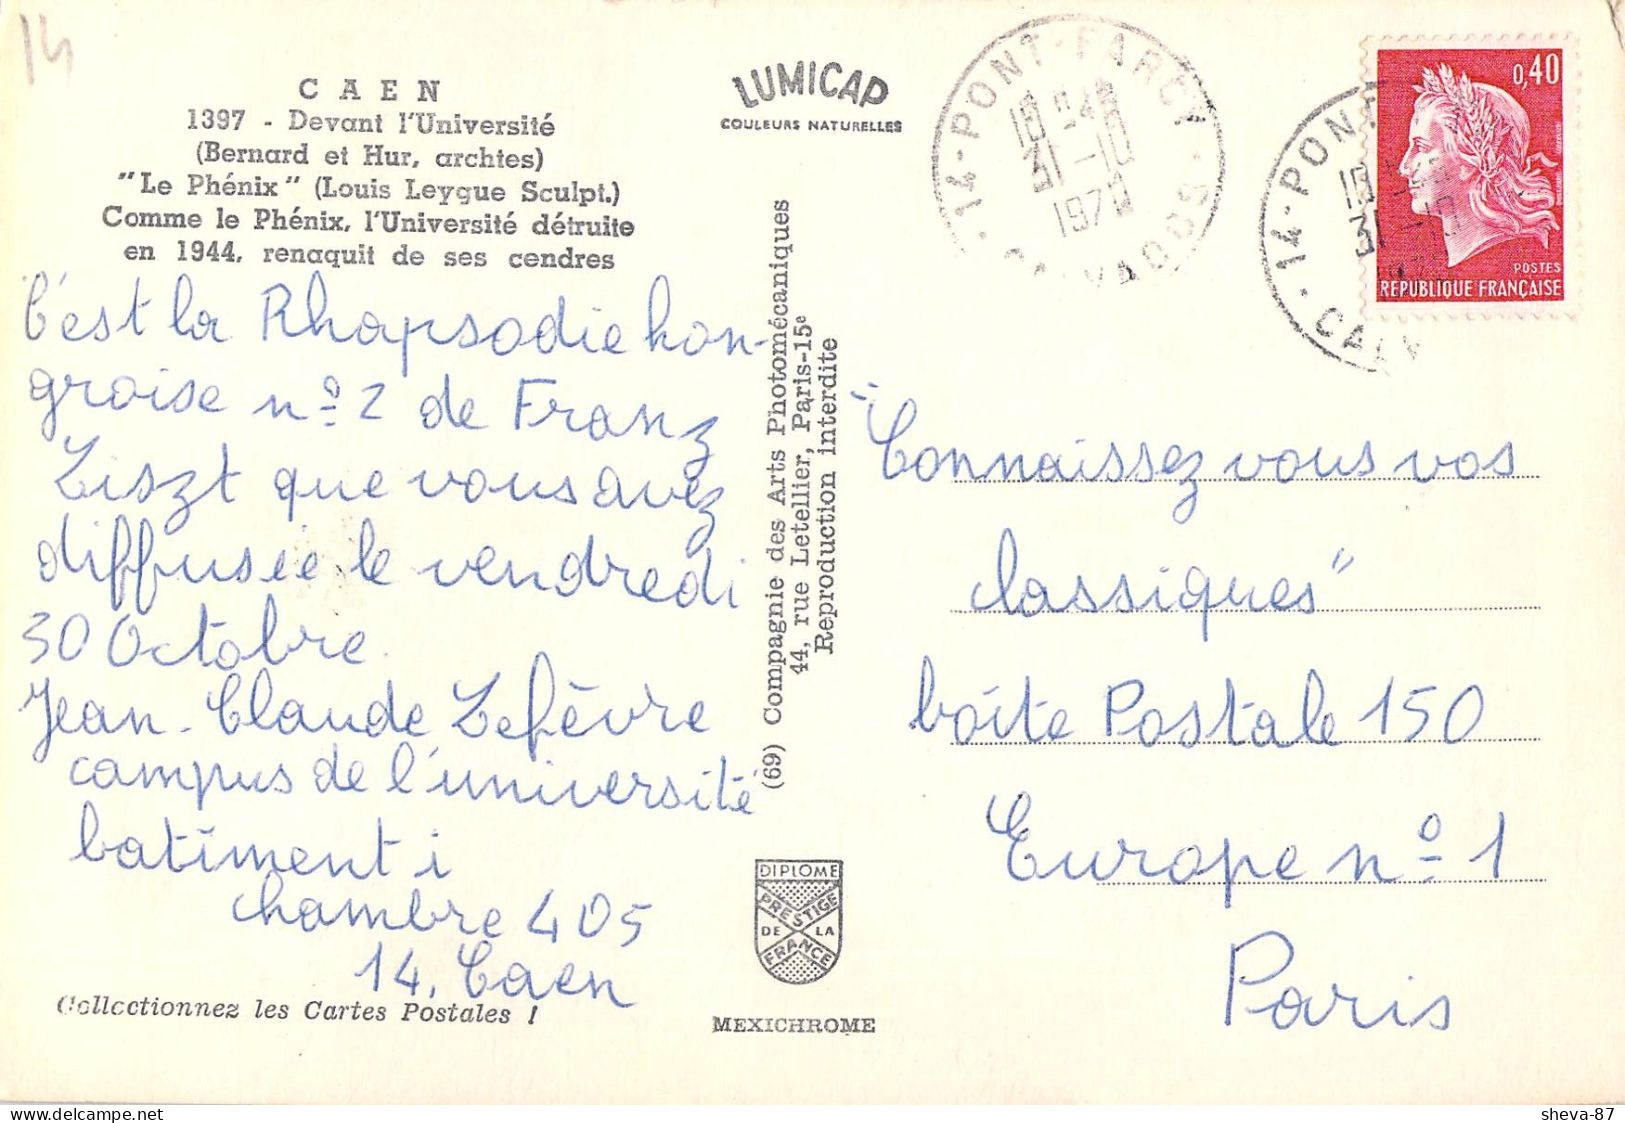 14
CAEN
1397 - Devant l'Université
(Bernard et Hur, archtes)
"Le Phénix" (Louis Leygue Sculpt.)
Comme le Phénix, l'Université détruite
en 1944, renaquit de ses cendres
C'est la Rhapsodie hon-
groise nº 2 de Franz
Liszt que vous avez
diffusée le vendredi
30 Octobre.
Jean-Claude Lefèvre
campus de l'université
batîment i
chambre 405
14, Caen
Collectionnez les Cartes Postales !
LUMICAP
COULEURS NATURELLES
(69) Compagnie des Arts Photomécaniques
44, rue Letellier, Paris-15e
Reproduction interdite
DIPLOME
PRESTIGE
DE LA
FRANCE
MEXICHROME
14-PONT-FARCY
18H
31-10
1970
CALVADOS
14-PONT
18H
31-10
1970
CALV
0,40
POSTES
REPUBLIQUE FRANÇAISE
"Connaissez vous vos
classiques"
boîte Postale 150
Europe nº 1
Paris
sheva-87